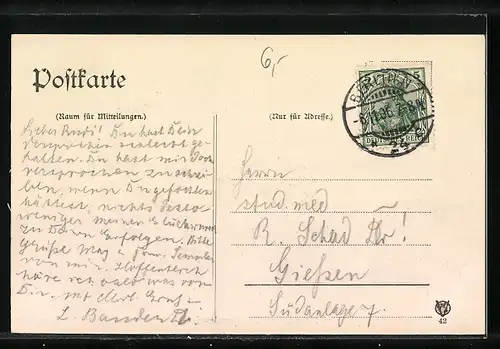 6,-
Postkarte
(Raum für Mitteilungen.)
(Nur für Adresse.)
BERLIN
5
Lieber Rudi! Du hast Dein
Versprechen schlecht ge-
halten. Du hast mir doch
versprochen zu schrei-
ben, wenn Du gefochten
hättest, nichts desto
weniger meinen Glückwunsch
zu Deinen Erfolgen. Bitte
Grüße
von mir. Hoffentlich
höre ich bald was von
Dir. Mit Gruß
L.
Herrn
stud. med
R. Schad
Gießen
Südanlage 7.
42